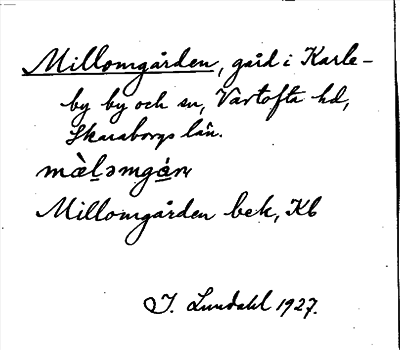 Millomgården, gård i Karle-
by by och sn, Vartofta hd,
Skaraborgs län.
mὰl̠əmgάrɳ
Millomgården bek, Kb
I. Lundahl 1927.